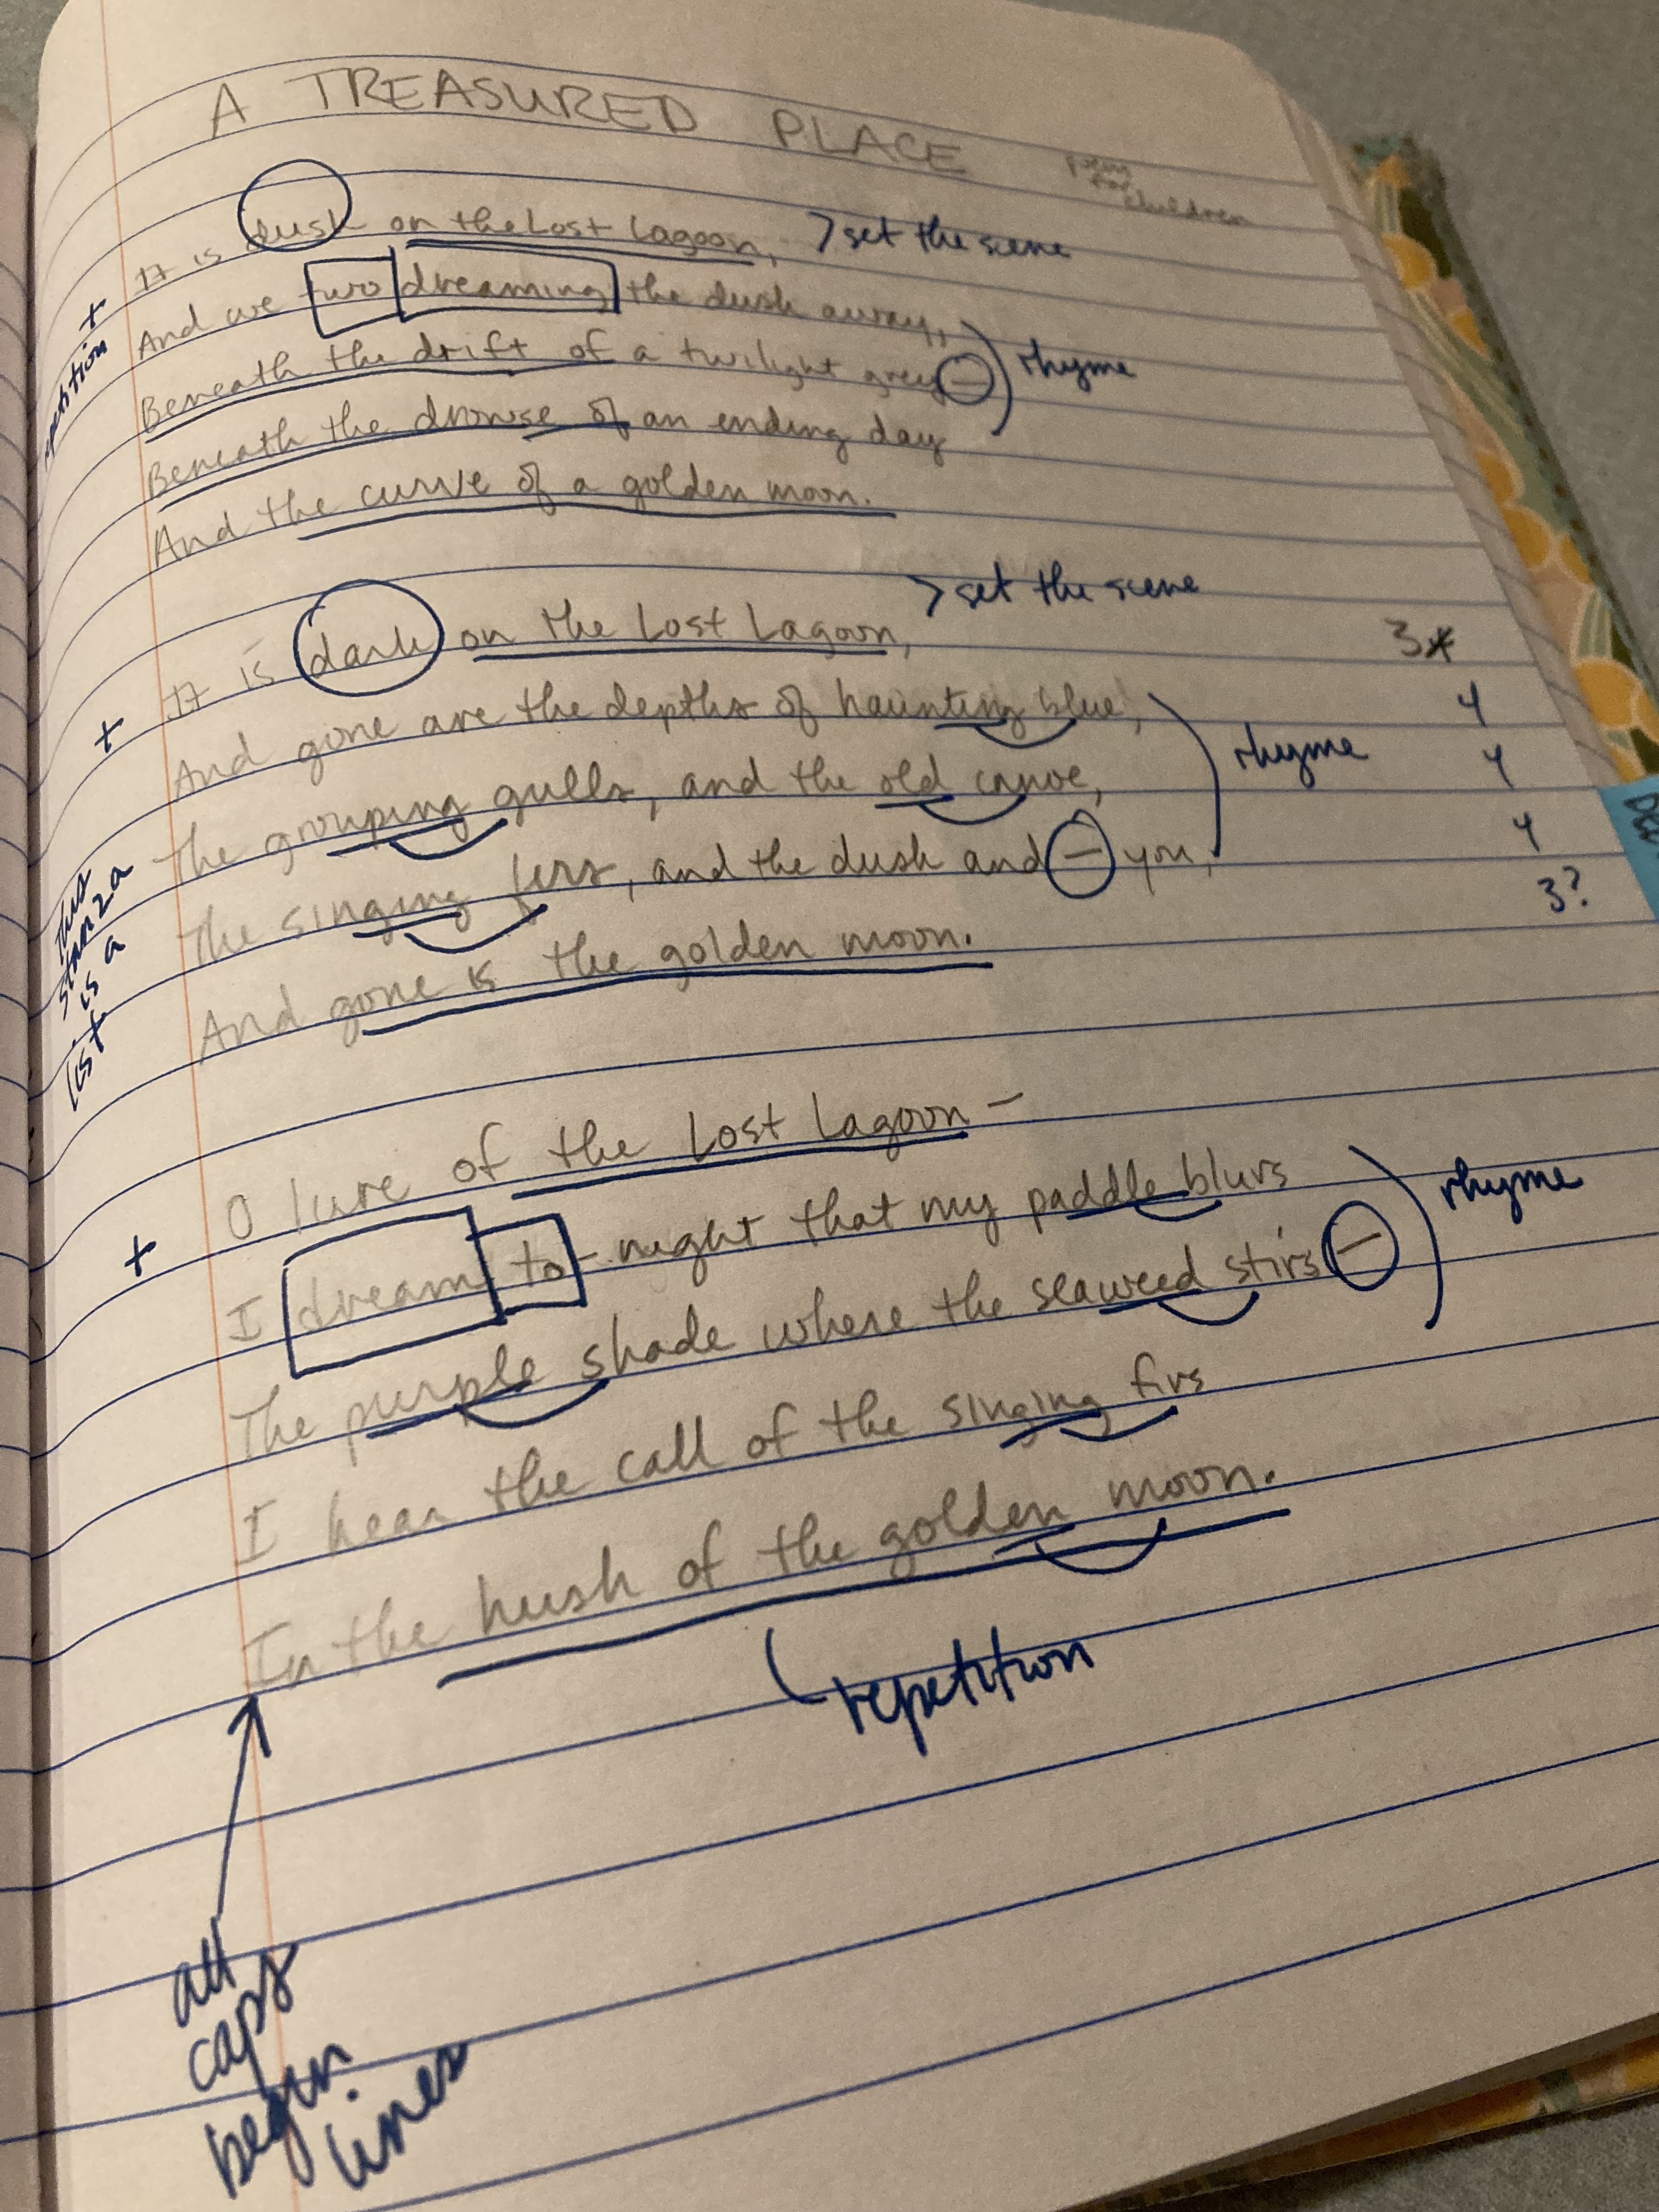 A TREASURED PLACE
poem
for
children
It is dusk on the Lost Lagoon, > set the scene
And we two dreaming the dusk away,
Beneath the drift of a twilight grey — rhyme
Beneath the drowse of an ending day
And the curve of a golden moon.
+
> set the scene
It is dark on the Lost Lagoon, 3
And gone are the depths of haunting blue, 4
The grouping gulls, and the old canoe, rhyme 4
The singing firs, and the dusk and — you, 4
And gone is the golden moon. 3?
+
this
stanza
is a
list
O lure of the Lost Lagoon —
I dream to-night that my paddle blurs rhyme
The purple shade where the seaweed stirs —
I hear the call of the singing firs
In the hush of the golden moon.
+
repetition
all
caps
begin
lines